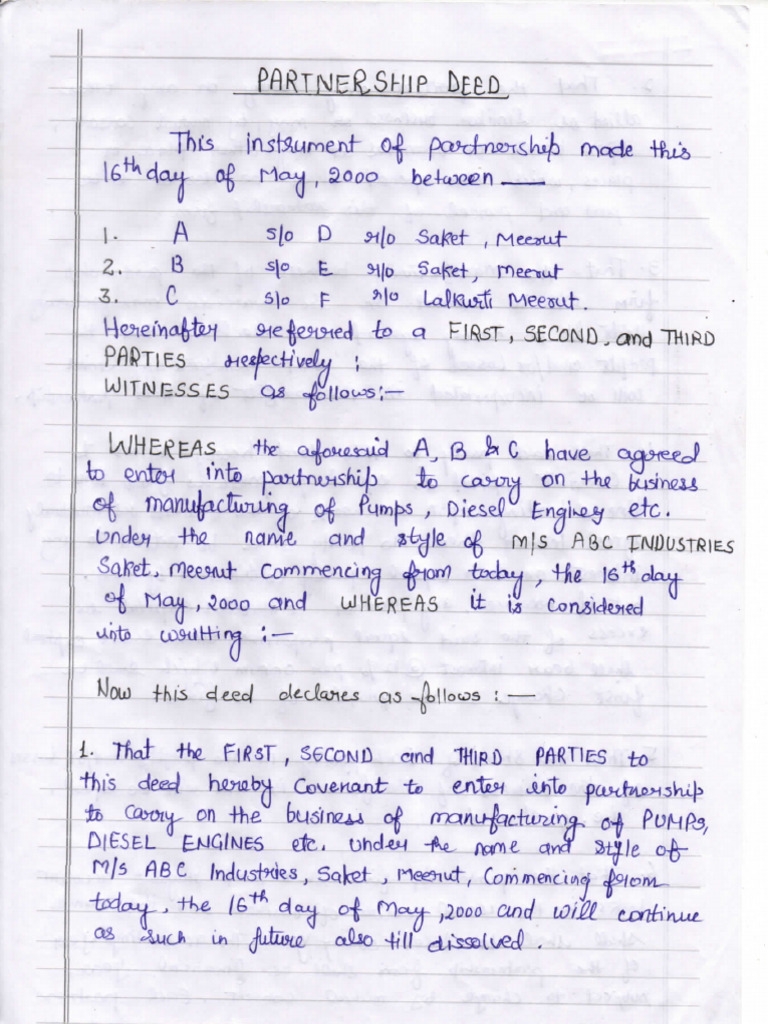 PARTNERSHIP DEED
This instrument of partnership made this
16th day of May, 2000 between —
1. A s/o D r/o Saket, Meerut
2. B s/o E r/o Saket, Meerut
3. C s/o F r/o Lalkurti Meerut.
Hereinafter referred to a FIRST, SECOND, and THIRD
PARTIES respectively :
WITNESSES as follows:—
WHEREAS the aforesaid A, B & C have agreed
to enter into partnership to carry on the business
of manufacturing of Pumps, Diesel Engines etc.
under the name and style of M/S ABC INDUSTRIES
Saket, Meerut Commencing from today, the 16th day
of May, 2000 and WHEREAS it is considered
into writting :—
Now this deed declares as follows :—
1. That the FIRST, SECOND and THIRD PARTIES to
this deed hereby Covenant to enter into partnership
to carry on the business of manufacturing of PUMPS,
DIESEL ENGINES etc. under the name and style of
M/S ABC Industries, Saket, Meerut, Commencing from
today, the 16th day of May, 2000 and will continue
as such in future also till dissolved.